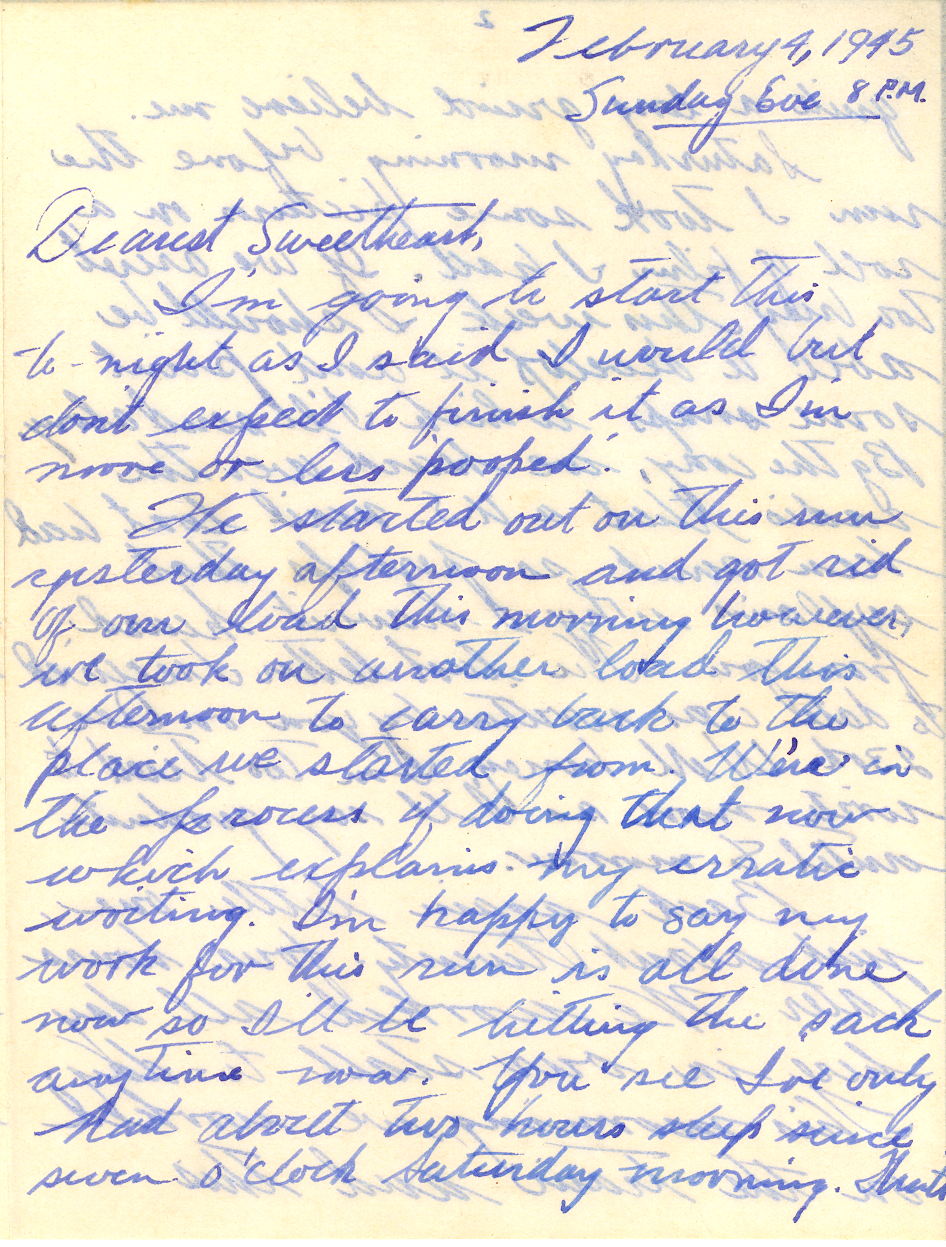 February 4, 1945
Sunday Eve 8 P.M.
Dearest Sweetheart,
I'm going to start this
to-night as I said I would but
don't expect to finish it as I'm
more or less 'pooped'.
We started out on this run
yesterday afternoon and got rid
of our load this morning however,
we took on another load this
afternoon to carry back to the
place we started from. We're in
the process of doing that now
which explains my erratic
writing. I'm happy to say my
work for this run is all done
now so I'll be hitting the sack
anytime now. You see I've only
had about two hours sleep since
seven o'clock Saturday morning. That's